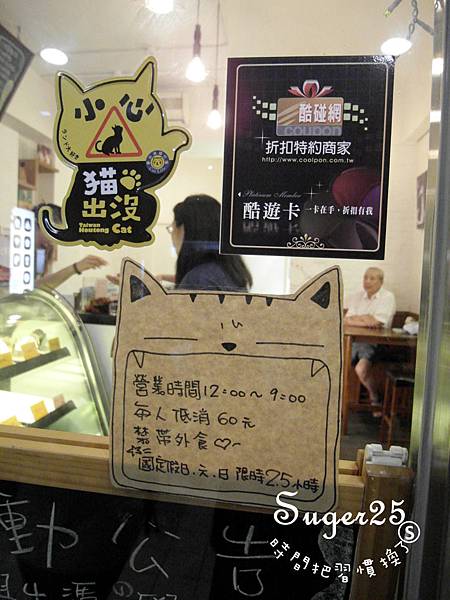 小心
貓
出沒
Taiwan
Houtong Cat
酷碰網
coupon
折扣特約商家
http://www.coolpon.com.tw
Platinum Member
酷遊卡 一卡在手，折扣有我
營業時間12:00～9:00
每人低消60元
禁帶外食♡
國定假日.六.日 限時2.5小時
動公告
Suger25
時間把習慣換了